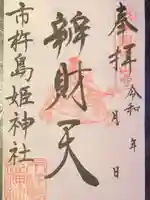 奉拝
令和 年 月 日
辨財天
市杵島姫神社